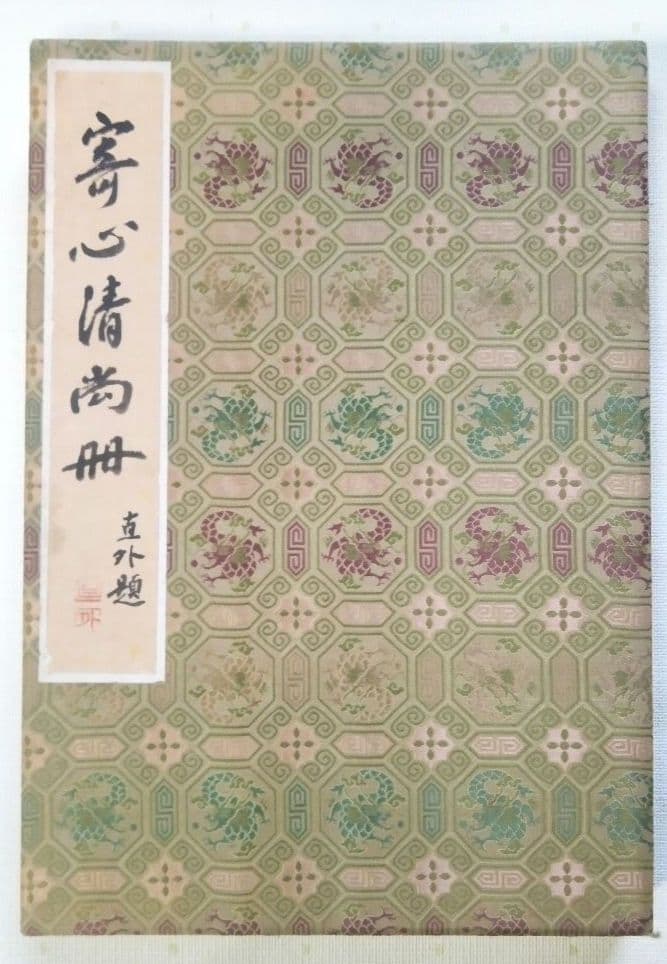 寄心清尚册
直外題
直外